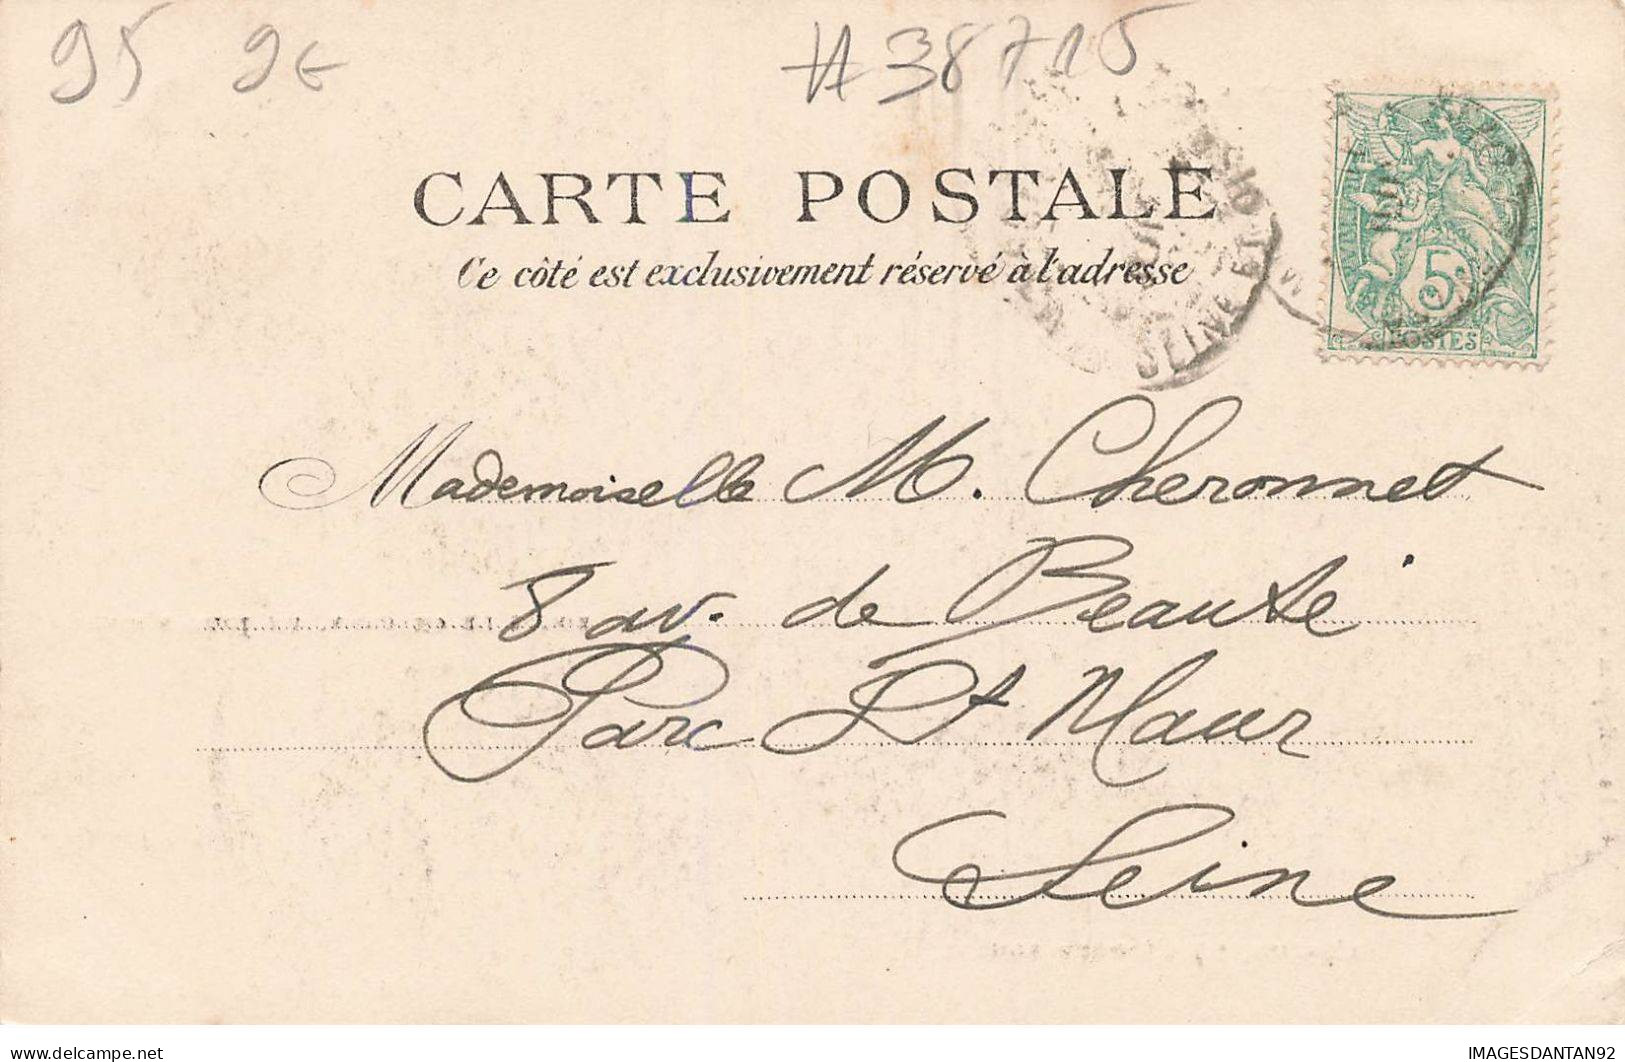 95 9€ #38715
CARTE POSTALE
Ce côté est exclusivement réservé à l'adresse
5
POSTES
SEINE
Mademoiselle M. Cheronnet
8 av. de Beauté
Parc St Maur
Seine
www.delcampe.net
IMAGESDANTAN92